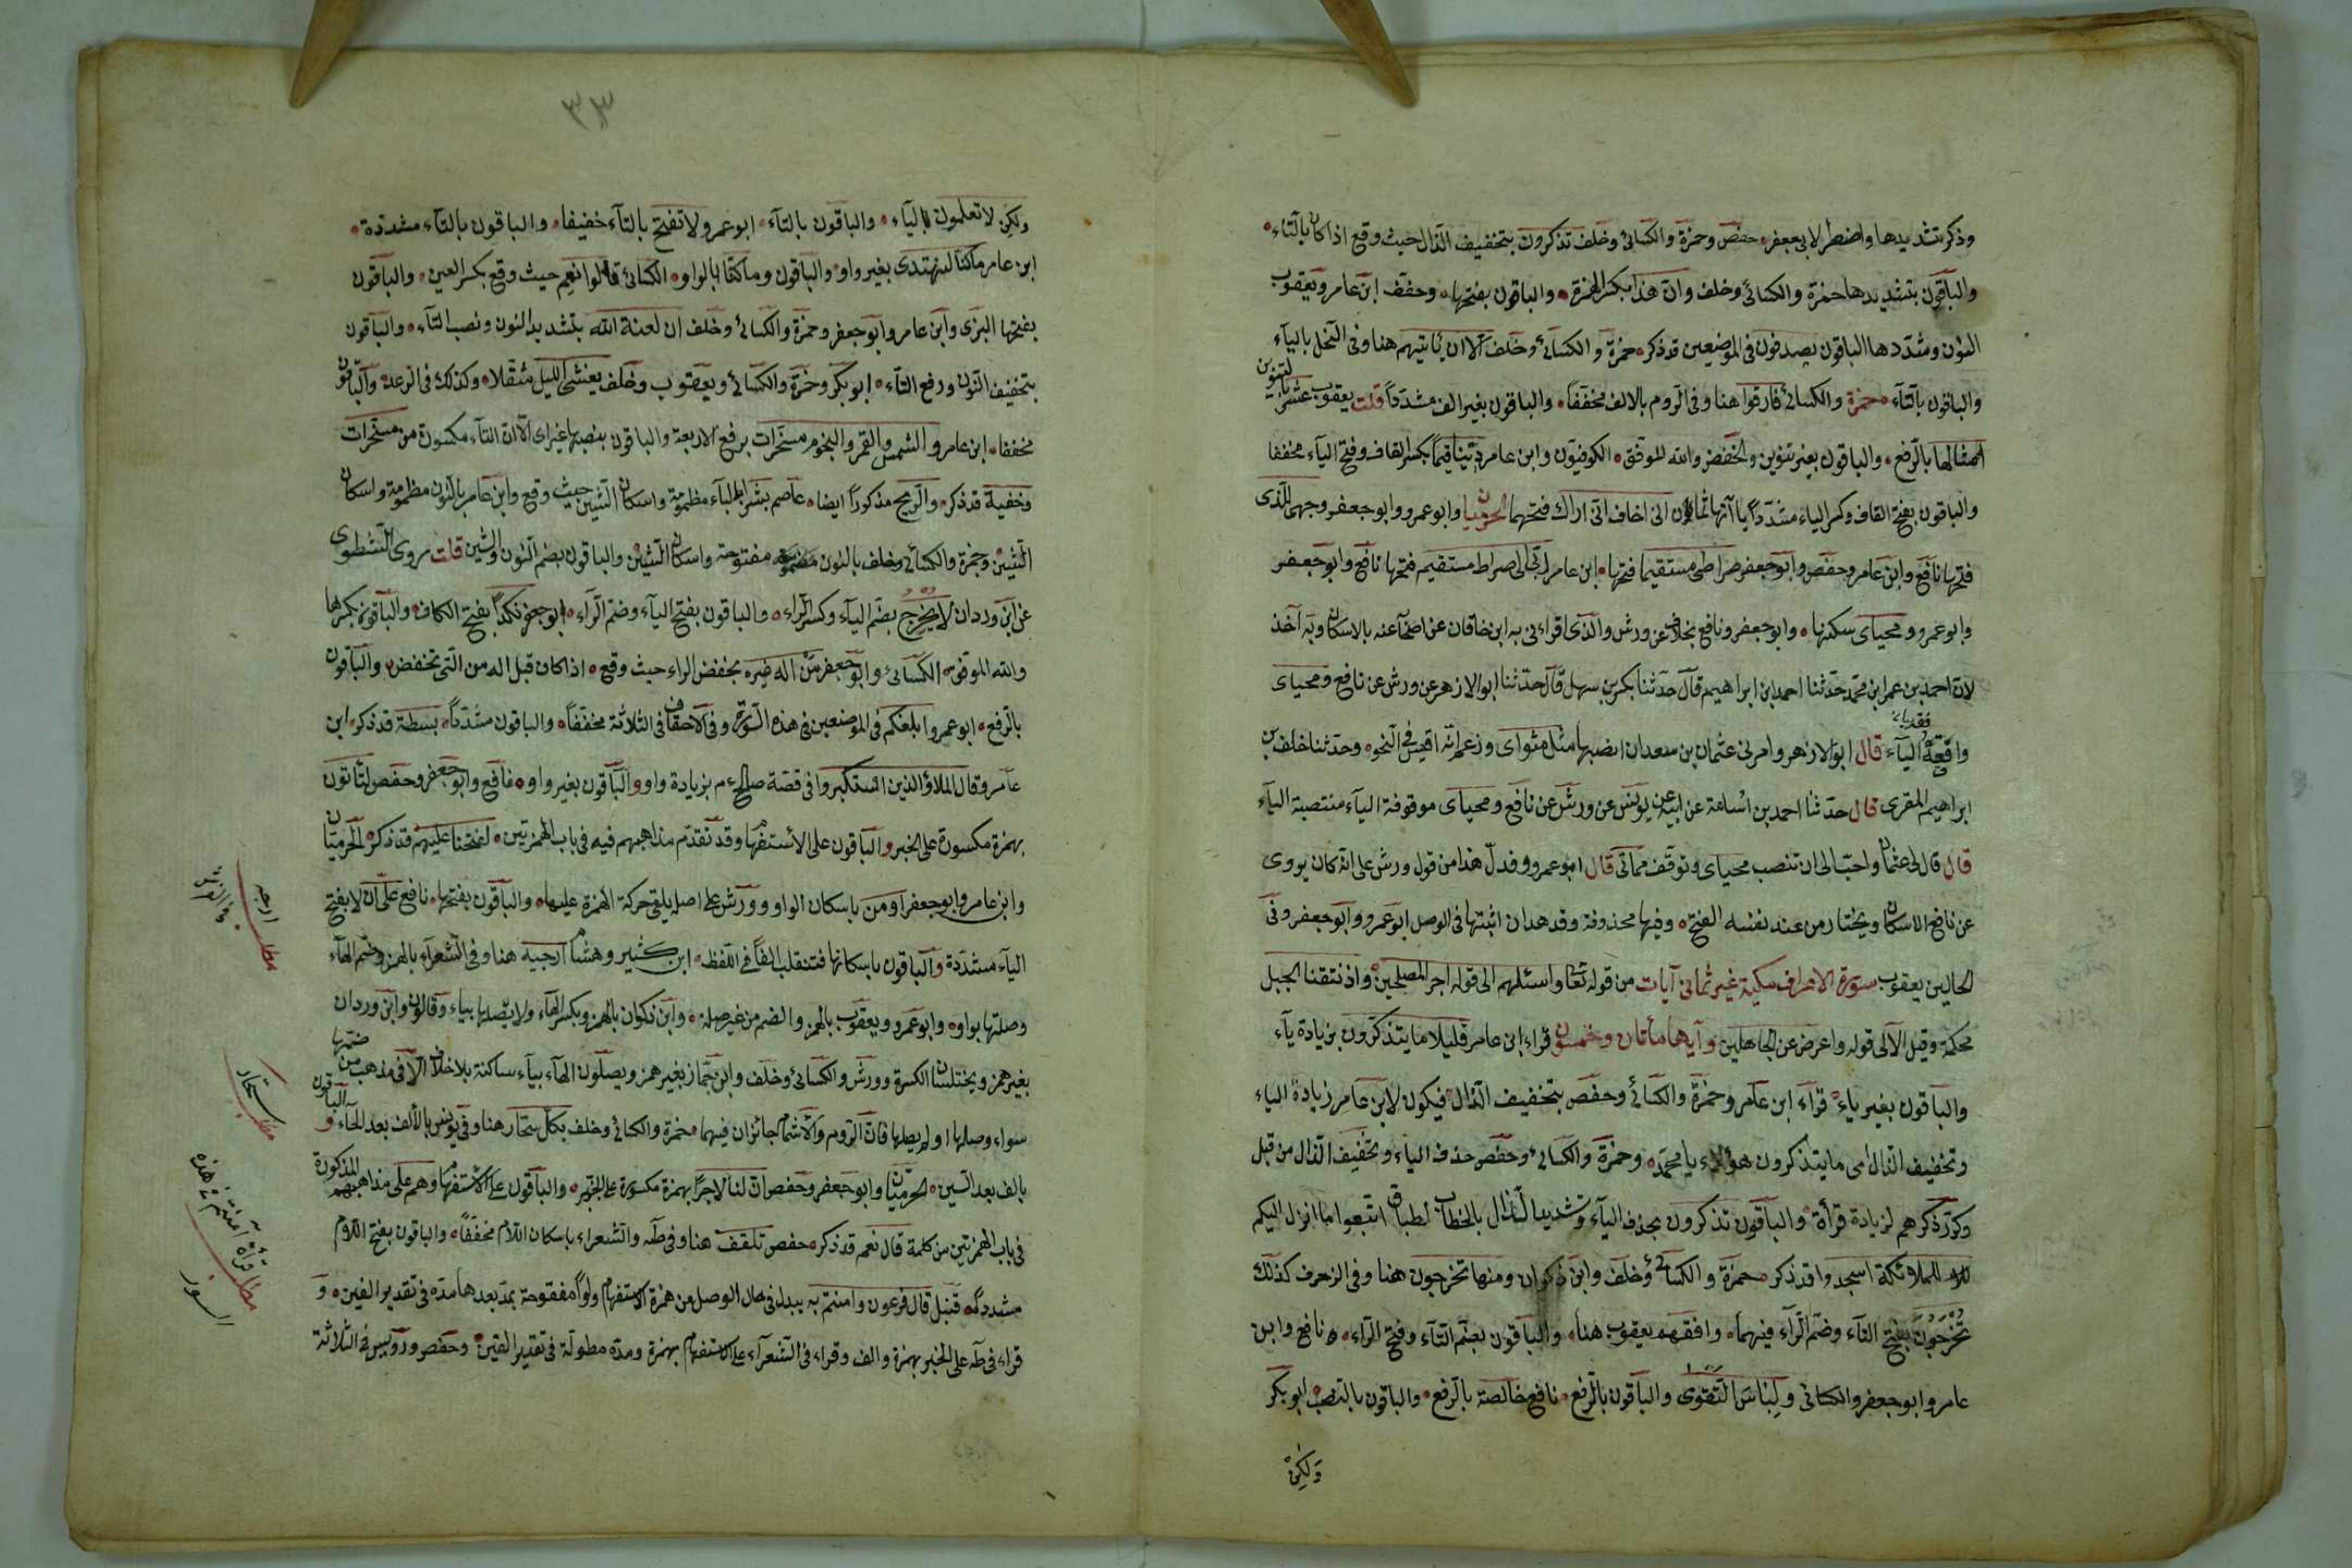 وذكر بتشديدها واضطر لابى جعفر حفص وحمزة والكسائى وخلف تذكرون بتخفيف الذال حيث وقع اذا كان بالتاء
والباقون بتشديدها حمزة والكسائى وخلف وان هذا بكسر الهمزة والباقون بفتحها وخفف ابن عامر ويعقوب
النون وشددها الباقون يصدفون فى الموضعين قد ذكر حمزة والكسائى وخلف الا ان ياتيهم هنا وفى النحل بالياء
والباقون بالتاء حمزة والكسائى فارقوا هنا وفى الروم بالالف مخففا والباقون بغير الف مشددا قلت يعقوب عشر بالتنوين
امثالها بالرفع والباقون بغير تنوين والخفض والله الموفق الكوفيون وابن عامر دينا قيما بكسر القاف وفتح الياء مخففا
والباقون بفتح القاف وكسر الياء مشددا ياآتها ثمان انى اخاف انى اراك فتحهما الحرميان وابو عمرو وابو جعفر وجهى للذى
فتحها نافع وابن عامر وحفص وابو جعفر صراطى مستقيما فتحها ابن عامر ربى الى صراط مستقيم فتحها نافع وابو جعفر
وابو عمرو ومحياى سكنها وابو جعفر ونافع بخلاف عن ورش والذى اقراءنى به ابن خاقان عن اصحابه عنه بالاسكان وبه آخذ
لان احمد بن عمر ابن محمد حدثنا احمد ابن ابراهيم قال حدثنا بكر بن سهل قال حدثنا ابو الازهر عن ورش عن نافع ومحياى
واقفة الياء قال ابو الازهر وامرنى عثمان بن سعد ان انصبها مثل مثواى وزعم انه اقيس فى النحو وحدثنا خلف بن
ابراهيم المقرى قال حدثنا احمد بن اسامة عن ابيه عن يونس عن ورش عن نافع ومحياى موقوفة الياء منتصبة الياء
قال قال لى عثمان واحب الى ان تنصب محياى وتوقف مماتى قال ابو عمرو وفدل هذا من قول ورش على انه كان يروى
عن نافع الاسكان ويختار من عند نفسه الفتح وفيها محذوفة وقد هدان اثبتها فى الوصل ابو عمرو وابو جعفر وفى
الحالين يعقوب سورة الاعراف مكية غير ثمانى آيات من قوله تعا واسئلهم الى قوله اجر المصلحين واذ نتقنا الجبل
محكمة وقيل الآ الى قوله واعرض عن الجاهلين وآيها مأتان وخمسون قراء ابن عامر قليلا ما يتذكرون بزيادة ياء
والباقون بغير ياء قراء ابن عامر وحمزة والكسائى وحفص بتخفيف الذال فيكون لابن عامر زيادة الياء
وتخفيف الذال اى ما يتذكرون هؤلاء يا محمد وحمزة والكسائى وحفص حذف الياء وتخفيف الذال من قبل
وكرر ذكرهم لزيادة قرأة والباقون تذكرون بحذف الياء وتشديد الذال بالخطاب لطباق اتبعوا ما انزل اليكم
للملائكة اسجدوا قد ذكر حمزة والكسائى وخلف وابن ذكوان ومنها تخرجون هنا وفى الزخرف كذلك
تخرجون بفتح التاء وضم الراء فيهما وافقهم يعقوب هنا والباقون بضم التاء وفتح الراء نافع وابن
عامر وابو جعفر والكسائى ولباس التقوى والباقون بالرفع نافع خالصة بالرفع والباقون بالنصب ابو بكر
ولكن
٣٣
ولكن لا تعلمون بالياء والباقون بالتاء ابو عمرو لا تفتح بالتاء خفيفا والباقون بالتاء مشددة
ابن عامر ما كنا لنهتدى بغير واو والباقون وما كنا بالواو الكسائى قالوا نعم حيث وقع بكسر العين والباقون
بفتحها البزى وابن عامر وابو جعفر وحمزة والكسائى وخلف ان لعنة الله بتشديد النون ونصب التاء والباقون
بتخفيف النون ورفع التاء ابو بكر وحمزة والكسائى ويعقوب وخلف يغشى الليل مثقلا وكذلك فى الرعد والباقون
مخففا ابن عامر والشمس والقمر والنجوم مسخرات برفع الاربعة والباقون بنصبها غير اى الا ان التاء مكسورة من مسخرات
وخفية قد ذكر والريح مذكورا ايضا عاصم بشرا بالباء مظمومة واسكان الشين حيث وقع وابن عامر بالنون مظمومة واسكان
الشين وحمزة والكسائى وخلف بالنون مفتوحة واسكان الشين والباقون بضم النون والشين قلت روى الشطوى
عن ابن وردان لا يخرج بضم الياء وكسر الراء والباقون بفتح الياء وضم الراء ابو جعفر نكدا بفتح الكاف والباقون بكسرها
والله الموفق الكسائى وابو جعفر من اله غيره بخفض الراء حيث وقع اذا كان قبل اله من التى تخفض والباقون
بالرفع ابو عمرو ابلغكم فى الموضعين فى هذه السورة وفى الاحقاف فى الثلاثة مخففا والباقون مشددا بسطة قد ذكر ابن
عامر وقال الملاؤ الذين استكبروا فى قصة صالح عم بزيادة واو والباقون بغير واو نافع وابو جعفر وحفص لتأتون
بهمزة مكسورة على الخبر والباقون على الاستفهام وقد تقدم مذاهبهم فيه فى باب الهمزتين لفتحنا عليهم قد ذكر الحرميان
وابن عامر وابو جعفر او من باسكان الواو وورش على اصله يلقى حركة الهمزة عليها والباقون بفتحها نافع على ان لا بفتح
الياء مشددة والباقون باسكانها فتنقلب الفا فى اللفظ ابن كثير وهشام ارجئه هنا وفى الشعراء بالهمز وضم الهاء
وصلتها بواو وابو عمرو ويعقوب بالهمز والضم من غير صلة وابن ذكوان بالهمز وبكسر الهاء ولا يصلها بياء وقالون وابن وردان
بغير همز ويختلسان الكسرة وورش والكسائى وخلف وابن جماز بغير همز ويصلون الهاء بياء ساكنة بلا خلاف الا فى مذهب من ضمها
سواء وصلها او لم يصلها فان الروم والاشمام جائزان فيهما حمزة والكسائى وخلف بكل سحار هنا وفى يونس بالالف بعد الحاء والباقون
بالف بعد السين الحرميان وابو جعفر وحفص ان لنا لاجرا بهمزة مكسورة على الخبر والباقون على الاستفهام وهم على مذاهبهم المذكورة
فى باب الهمزتين من كلمة قال نعم قد ذكر حفص تلقف هنا وفى طه والشعراء باسكان اللام مخففا والباقون بفتح اللام
مشددا قنبل قال فرعون وامنتم به يبدل فى حال الوصل من همزة الاستفهام واوا مفتوحة بمد بعدها مدة فى تقدير الفين و
قراء فى طه على الخبر بهمزة والف وقراء فى الشعراء على الاستفهام بهمزة ومدة مطولة فى تقدير الفين وحفص ورويس فى الثلاثة
مطلب ارجه
مطلب سحار
مطلب قراءة آمنتم فى هذه السور